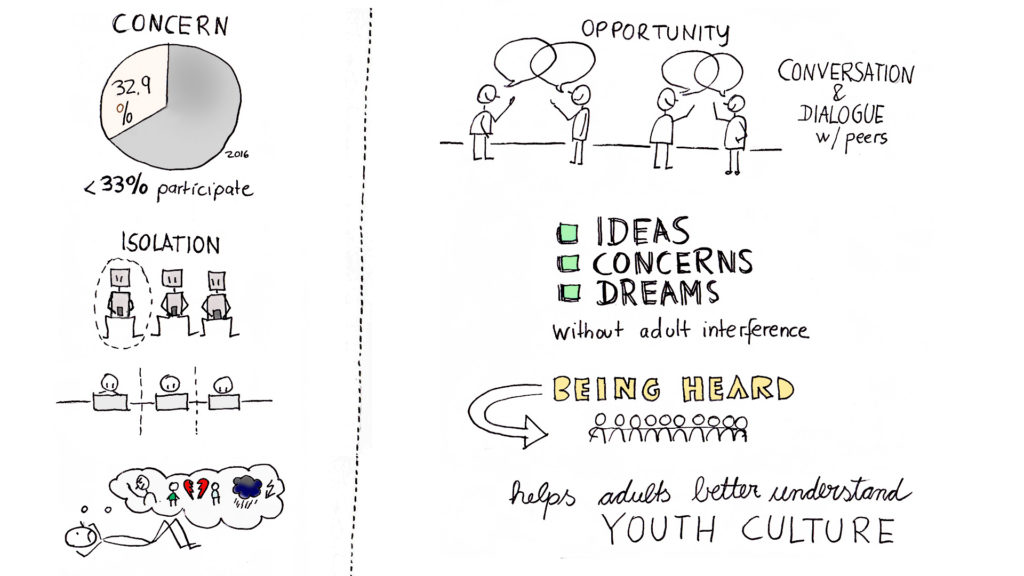 CONCERN
32.9
%
2016
<33% participate
ISOLATION
OPPORTUNITY
CONVERSATION
&
DIALOGUE
w/peers
IDEAS
CONCERNS
DREAMS
without adult interference
BEING HEARD
helps adults better understand
YOUTH CULTURE